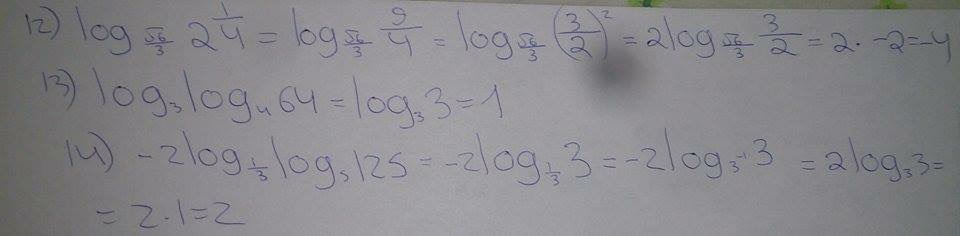 12) log_{√6/3} 2 1/4 = log_{√6/3} 9/4 = log_{√6/3} (3/2)² = 2log_{√6/3} 3/2 = 2 · -2 = -4
13) log₃ log₄ 64 = log₃ 3 = 1
14) -2log_{1/3} log₅ 125 = -2log_{1/3} 3 = -2log_{3⁻¹} 3 = 2log₃ 3 =
= 2 · 1 = 2